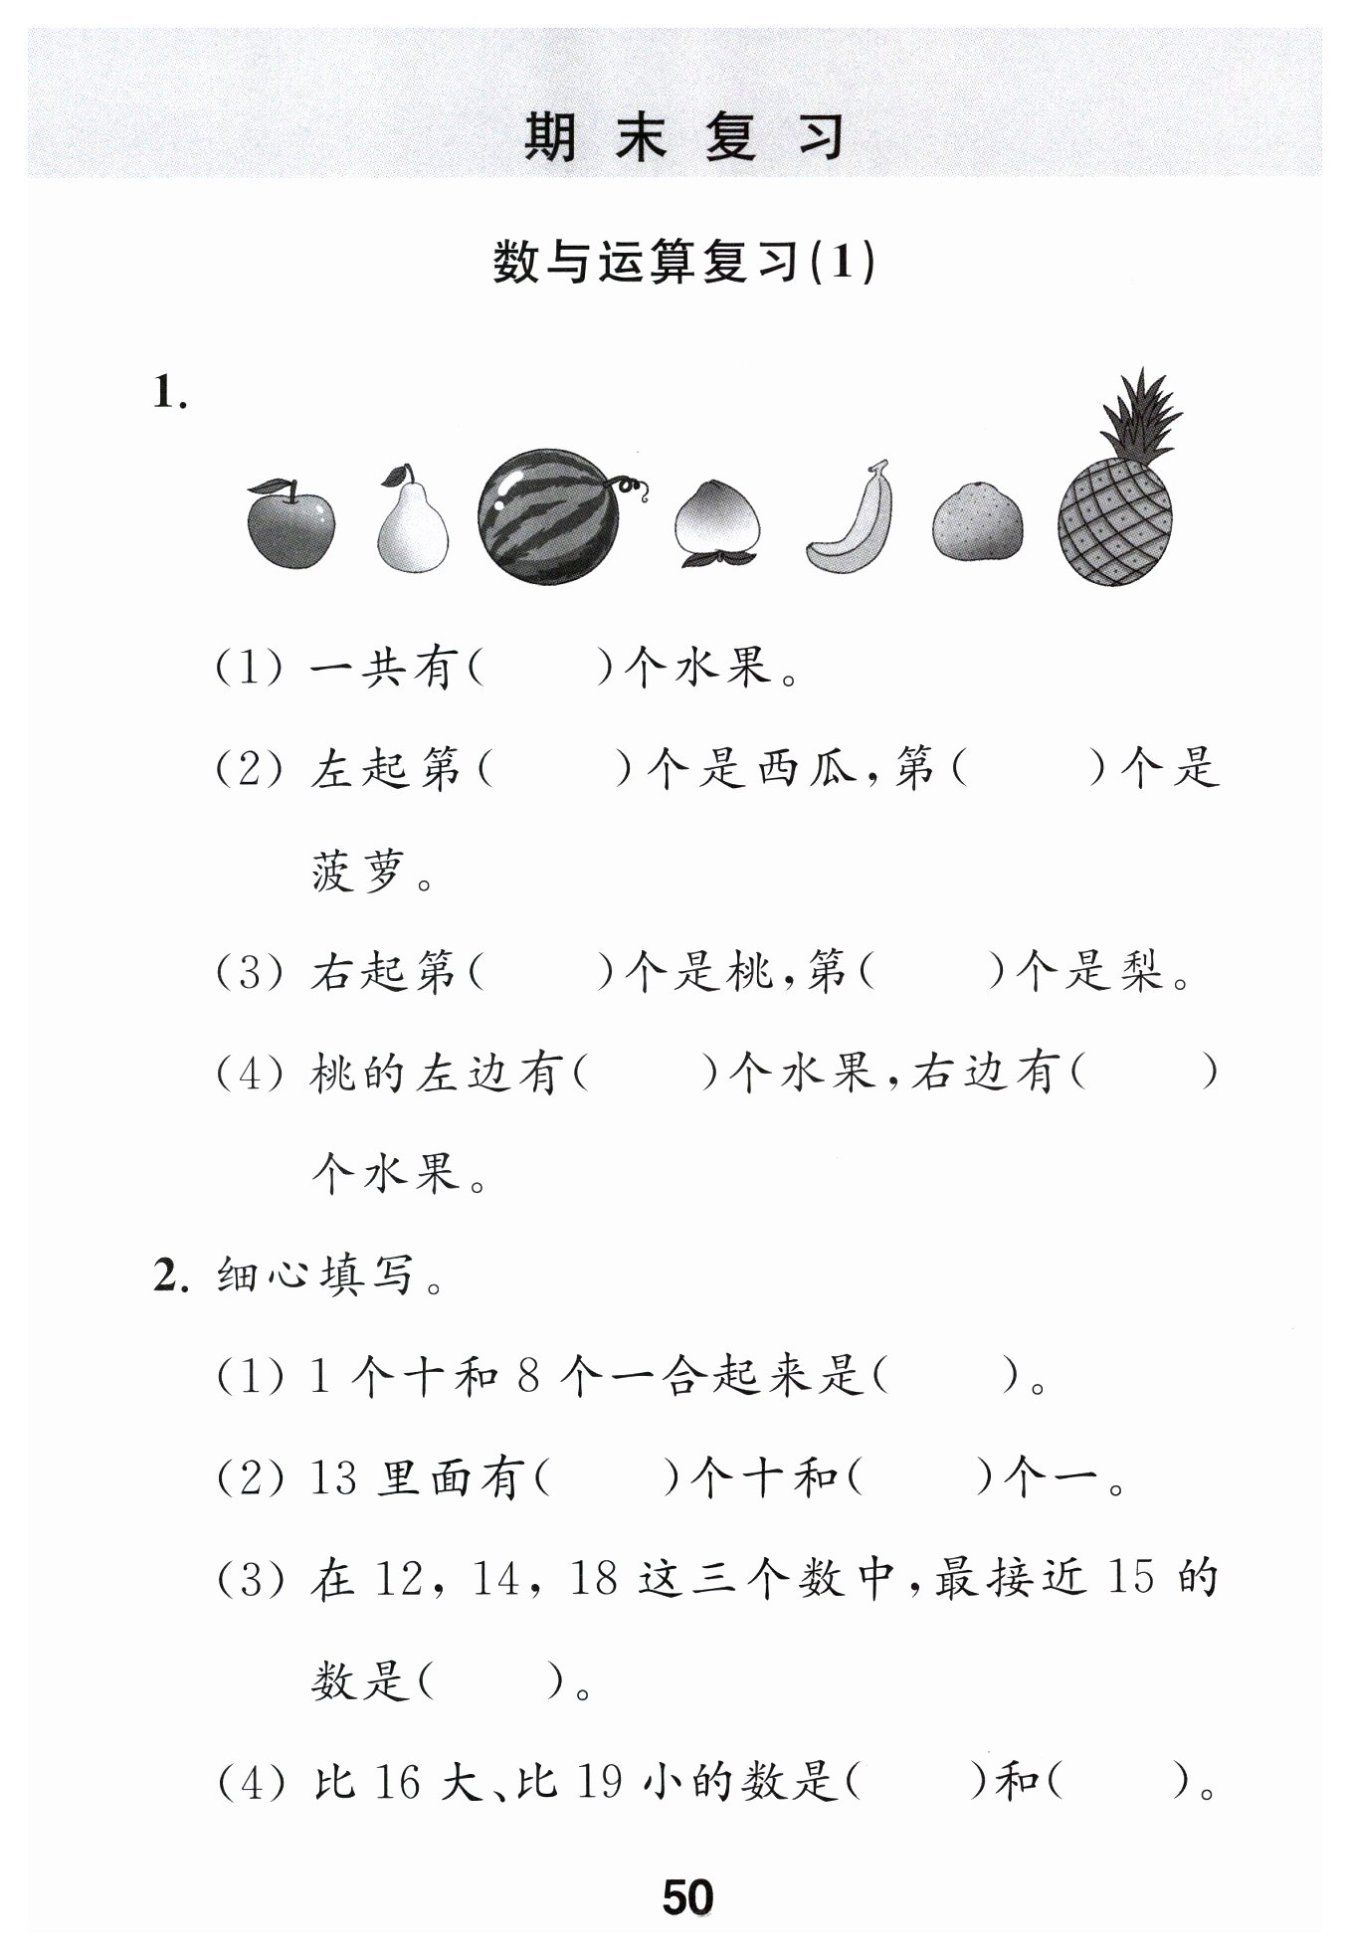 期末复习
数与运算复习(1)
1.
(1) 一共有(　　)个水果。
(2) 左起第(　　)个是西瓜,第(　　)个是
菠萝。
(3) 右起第(　　)个是桃,第(　　)个是梨。
(4) 桃的左边有(　　)个水果,右边有(　　)
个水果。
2. 细心填写。
(1) 1 个十和 8 个一合起来是(　　)。
(2) 13 里面有(　　)个十和(　　)个一。
(3) 在 12, 14, 18 这三个数中,最接近 15 的
数是(　　)。
(4) 比 16 大、比 19 小的数是(　　)和(　　)。
50